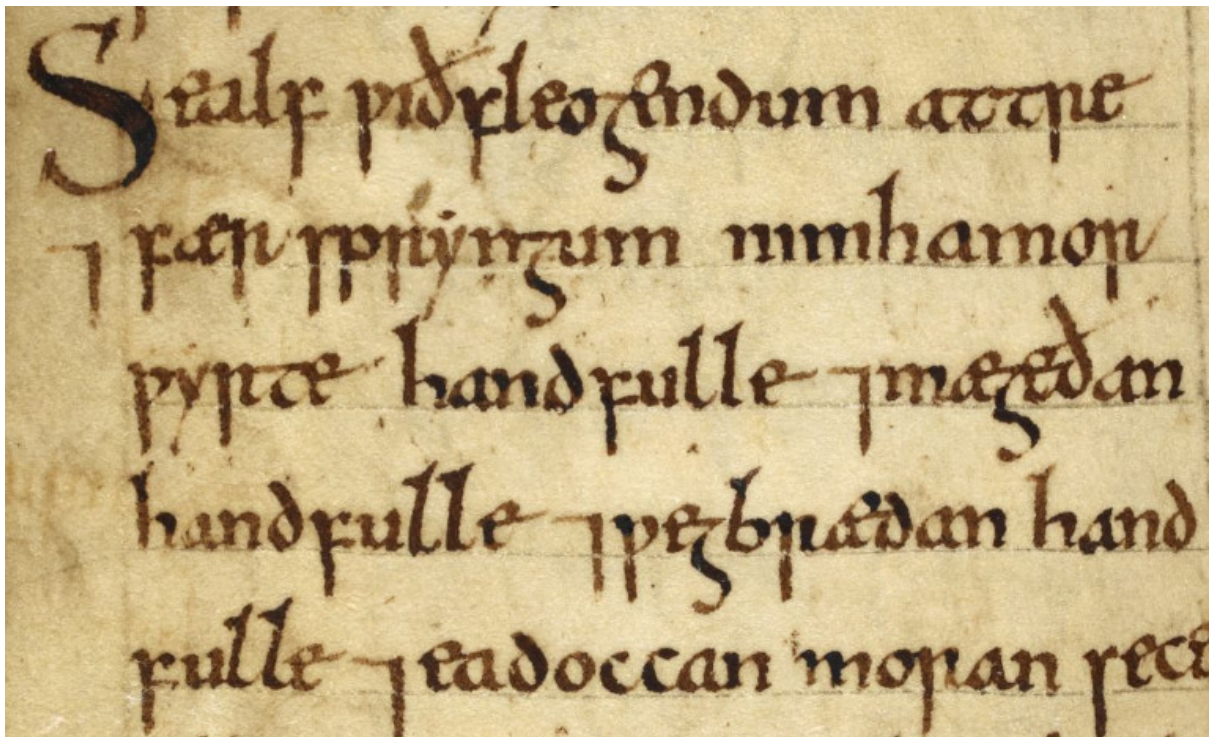 Sealf ƿið fleogendum attre
⁊ fær spryngum nim hamor
ƿyrte handfulle ⁊ mægeðan
handfulle ⁊ ƿegbrædan hand
fulle ⁊ eadoccan moran sece